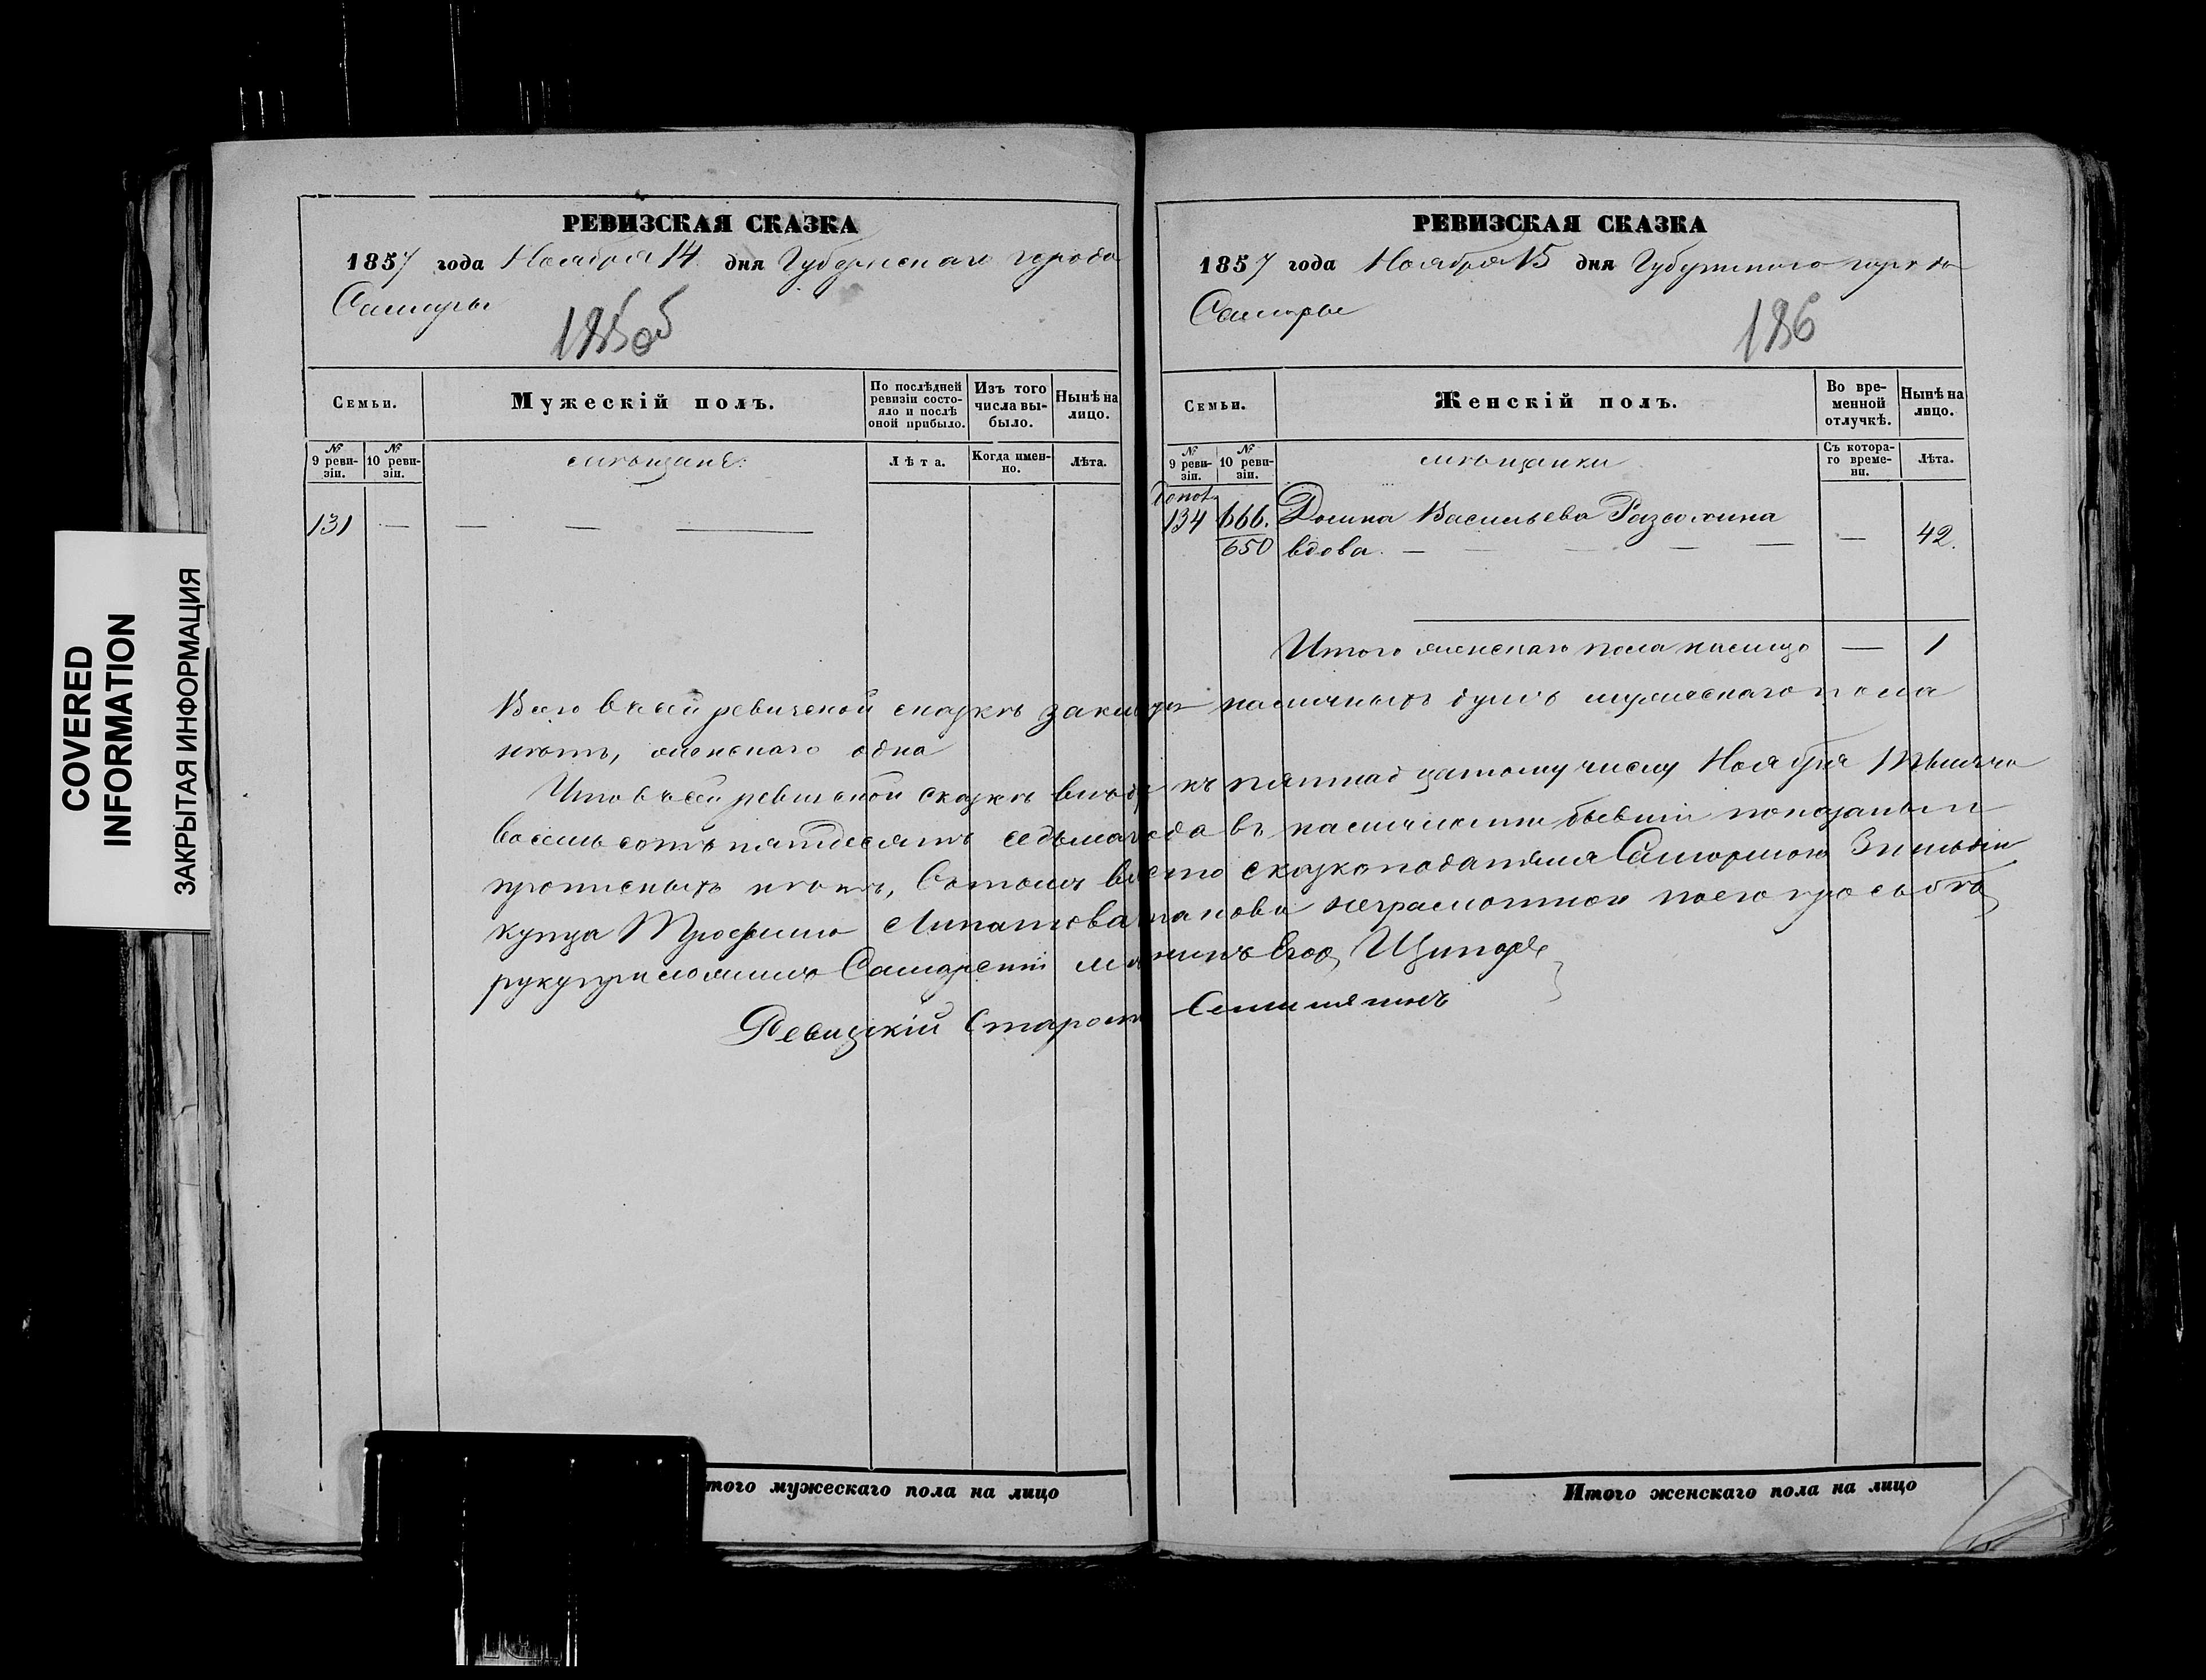 COVERED INFORMATION
ЗАКРЫТАЯ ИНФОРМАЦИЯ
РЕВИЗСКАЯ СКАЗКА
1857 года Ноября 14 дня Губернскаго города
Самары
185об
Семьи.
Мужескій полъ.
По послѣдней ревизіи состояло и послѣ оной прибыло.
Изъ того числа выбыло.
Нынѣ на лицо.
№ 9 ревизіи.
№ 10 ревизіи.
мѣщане.
Лѣта.
Когда именно.
Лѣта.
131 — — — —
РЕВИЗСКАЯ СКАЗКА
1857 года Ноября 15 дня Губернскаго города
Самары
186
Семьи.
Женскій полъ.
Во временной отлучкѣ.
Нынѣ на лицо.
№ 9 ревизіи.
№ 10 ревизіи.
мѣщанки
Съ котораго времени.
Лѣта.
134 666. Домна Васильева
650 вдова. — — — — — — 42.
Итого женскаго пола налицо — 1
Всего въ сей ревизской сказкѣ наличныхъ душъ мужескаго пола
нѣтъ, женскаго одна
Что в сей ревизской сказкѣ къ пятнадцатому числу Ноября Тысяча
восемь сотъ пятдесятъ седьмаго года въ наличности бывшіи показаны и
прописныхъ нѣтъ, Вотомъ вмѣсто сказкоподателя Самарскаго
купца Трофима неграмотнаго поего прозьбѣ
руку приложилъ Самарскій мѣщанинъ
Ревизскій Староста
Итого мужескаго пола на лицо
Итого женскаго пола на лицо